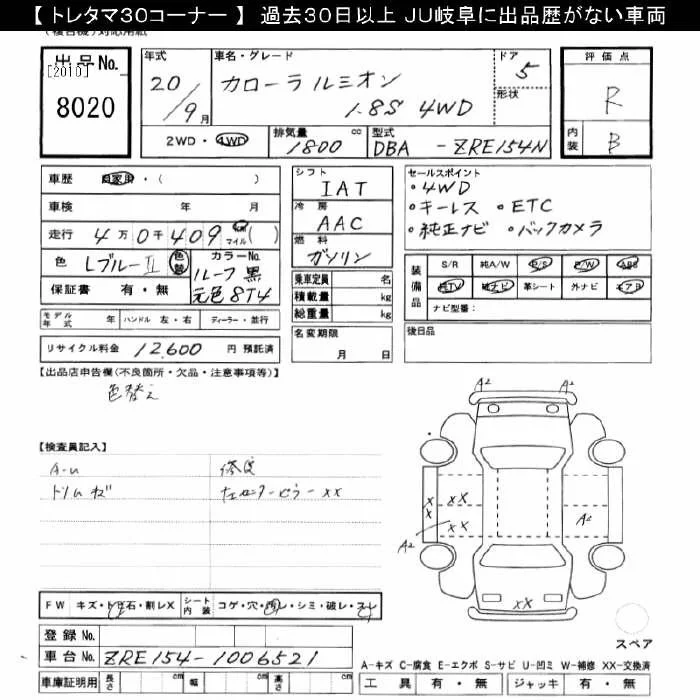 【 トレタマ30コーナー 】 過去30日以上 JU岐阜に出品歴がない車両
出品No. [2010]
8020
年式 20/9月
車名・グレード カローラルミオン 1.8S 4WD
ドア 5
形状
2WD・4WD
排気量 1800 cc
型式 DBA - ZRE154N
評価点 R
内装 B
車歴 自家用・( )
車検 年 月
走行 4万0千409 km マイル ( )
色 Lブルー II 色替
カラーNo. ルーフ黒 元色8T4
保証書 有・無
モデル年式 年 ハンドル 左・右 ディーラー・並行
リサイクル料金 12,600 円 預託済
シフト IAT
冷房 AAC
燃料 ガソリン
乗車定員 名
積載量 kg
総重量 kg
名変期限 月 日
セールスポイント
・4WD
・キーレス ・ETC
・純正ナビ ・バックカメラ
装備品 S/R 純A/W P/S P/W ABS
純TV 純ナビ 革シート 外ナビ エアB
ナビ型番:
後日品
【出品店申告欄(不良箇所・欠品・注意事項等)】
色替え
【検査員記入】
A-u
トリムキズ
修复
左センターピラー××
A2 A2
×× ×× ××
A2 A2
××
FW キズ・トビ石・割レX シート内装 コゲ・穴・汚レ・シミ・破レ・スレ
登録No.
車台No. ZRE154-1006521
車庫証明用 長さ cm 幅 cm 高さ cm
スペア
A-キズ C-腐食 E-エクボ S-サビ U-凹ミ W-補修 XX-交換済
工具 有・無 ジャッキ 有・無